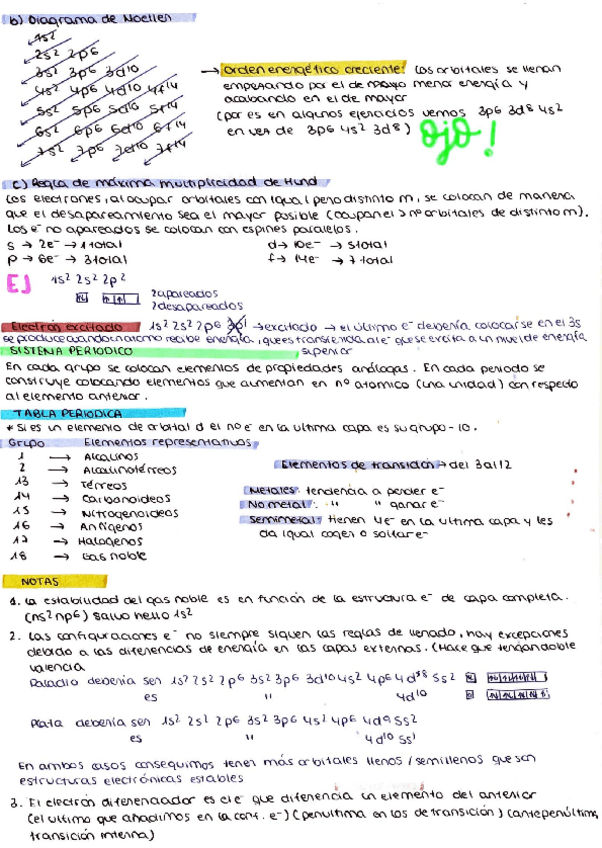 b) Diagrama de Moeller
1s² 
2s² 2p⁶
3s² 3p⁶ 3d¹⁰
4s² 4p⁶ 4d¹⁰ 4f¹⁴
5s² 5p⁶ 5d¹⁰ 5f¹⁴
6s² 6p⁶ 6d¹⁰ 6f¹⁴
7s² 7p⁶ 7d¹⁰ 7f¹⁴
→ Orden energético creciente: Los orbitales se llenan
empezando por el de menor energía y
acabando en el de mayor
(por es en algunos ejercicios vemos 3p6 3d8 4s2
en vez de 3p6 4s2 3d8) OJO!
c) Regla de máxima multiplicidad de Hund
Los electrones, al ocupar orbitales con igual l pero distinto m, se colocan de manera
que el desapareamiento sea el mayor posible (ocupan el > nº orbitales de distinto m).
Los e⁻ no apareados se colocan con espines paralelos.
s → 2e⁻ → 1 total d → 10e⁻ → 5 total
p → 6e⁻ → 3 total f → 14e⁻ → 7 total
EJ 1s² 2s² 2p²
2 apareados
2 desapareados
Electrón excitado 1s² 2s² 2p6 3p¹ → excitado → el último e⁻ debería colocarse en el 3s
se produce cuando un átomo recibe energía, que es transferida al e⁻ que se excita a un nivel de energía
superior
SISTEMA PERIODICO
En cada grupo se colocan elementos de propiedades análogas. En cada periodo se
construye colocando elementos que aumentan en nº atomico (una unidad) con respecto
al elemento anterior.
TABLA PERIODICA
* Si es un elemento de orbital d el nº e⁻ en la ultima capa es su grupo - 10.
Grupo Elementos representativos
1 → Alcalinos
2 → Alcalinotérreos
13 → Térreos
14 → Carbonoideos
15 → Nitrogenoideos
16 → Anfígenos
17 → Halógenos
18 → Gas noble
Elementos de transición → del 3 al 12
Metales: tendencia a perder e⁻
No metal: " " ganar e⁻
Semimetal: tienen 4e⁻ en la ultima capa y les
da igual coger o soltar e⁻
NOTAS
1. La estabilidad del gas noble es en función de la estructura e⁻ de capa completa.
(ns² np6) salvo helio 1s²
2. Las configuraciones e⁻ no siempre siguen las reglas de llenado, hay excepciones
debido a las diferencias de energía en las capas externas. (Hace que tengan doble
valencia
Paladio debería ser 1s² 2s² 2p6 3s² 3p6 3d10 4s² 4p6 4d8 5s²
es " 4d10
Plata debería ser 1s² 2s² 2p6 3s² 3p6 4s² 4p6 4d9 5s2
es " 4d10 5s1
En ambos casos conseguimos tener más orbitales llenos / semillenos que son
estructuras electrónicas estables
3. El electrón diferenciador es el e⁻ que diferencia un elemento del anterior
(el ultimo que añadimos en la conf. e⁻) (penultima en los de transición) (antepenúltima,
transición interna)